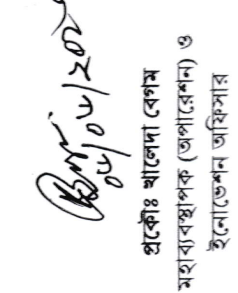 ০৮/০৮/২০২
প্রকৌঃ খালেদা বেগম
মহাব্যবস্থাপক (অপারেশন) ও
ইনোভেশন অফিসার